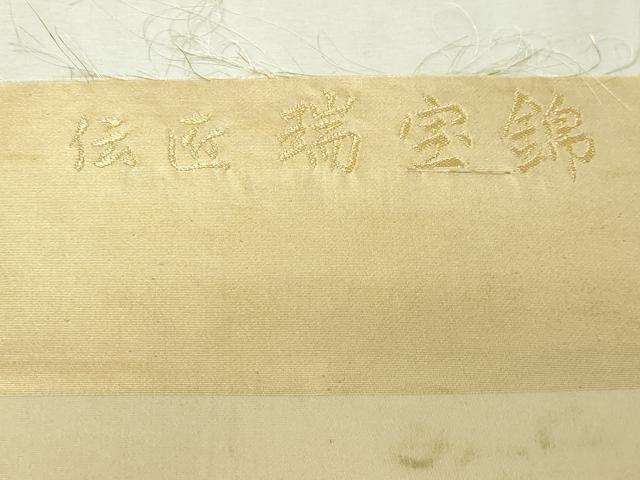 伝匠瑞宝錦